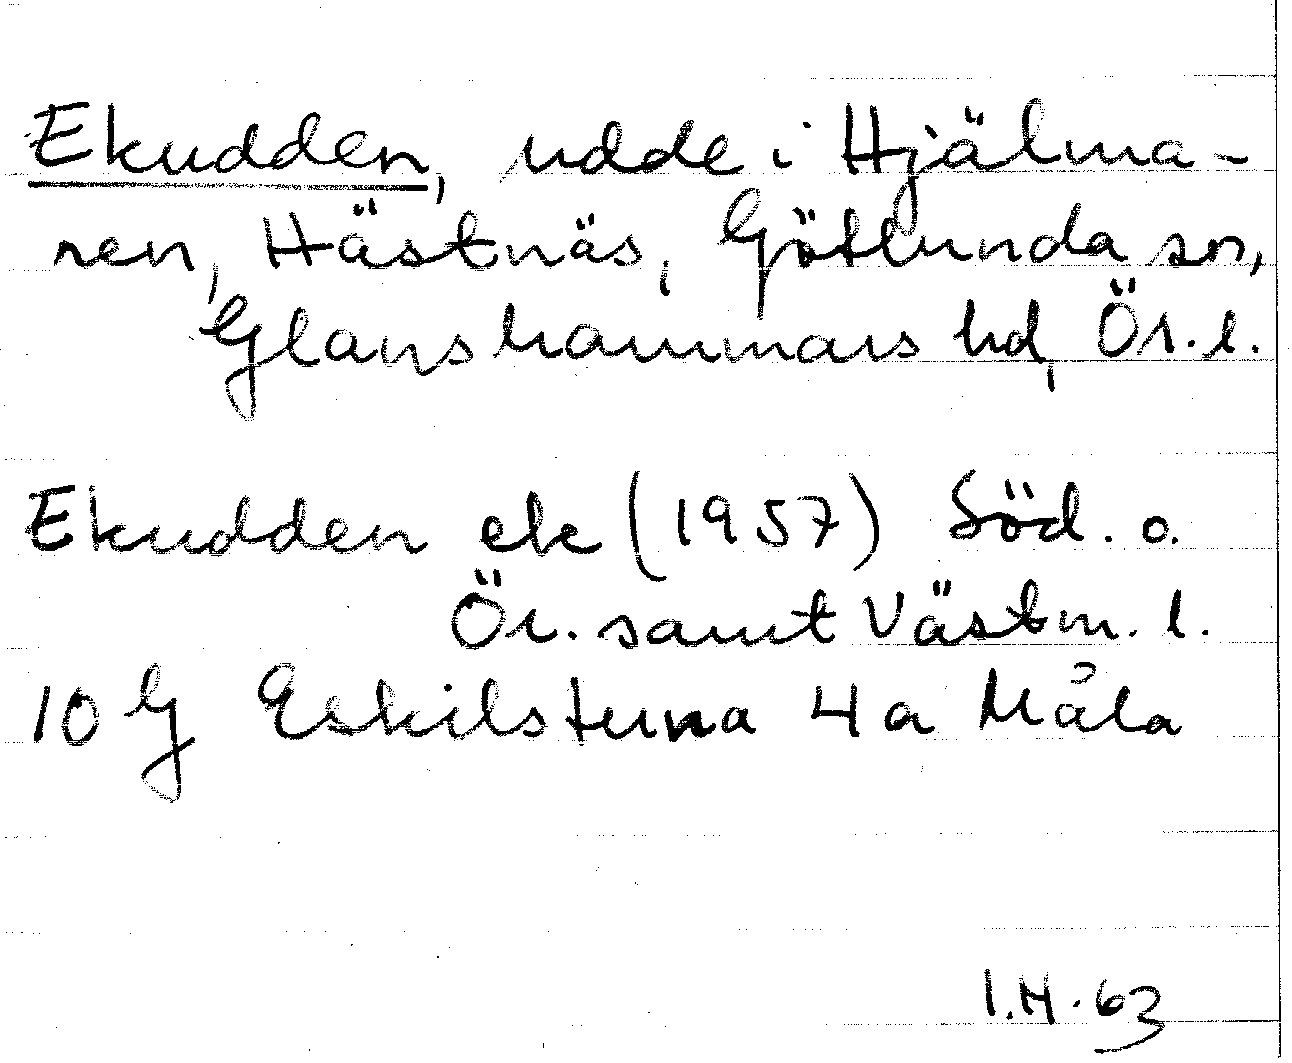 Ekudden, udde i Hjälma-
ren, Hästnäs, Götlunda sn,
Glanshammars hd, Ör. l.
Ekudden ek (1957) Söd. o.
Ör. samt Västm. l.
10 G Eskilstuna 4 a Måla
I.H. 63